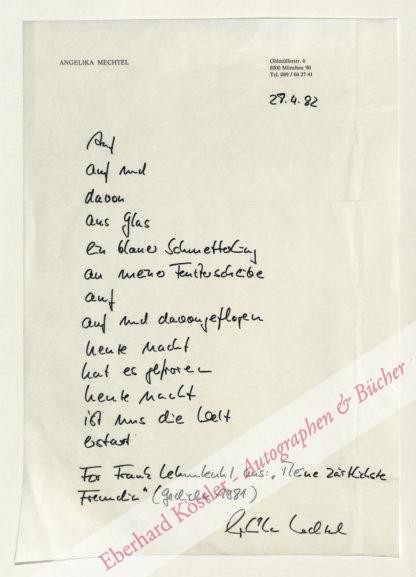 ANGELIKA MECHTEL
Ohlmüllerstr. 6
8000 München 90
Tel. 089 / 66 27 41
29.4.82
Auf
auf und
davon
aus Glas
ein blauer Schmetterling
an meiner Fensterscheibe
auf
auf und davongeflogen
heute Nacht
hat es gefroren
heute Nacht
ist uns die Welt
erstarrt
Für Frank Lehmkuhl, aus: "Meine zärtlichste
Freundin" (Gedichte 1981)
Eberhard Köstler - Autographen & Bücher